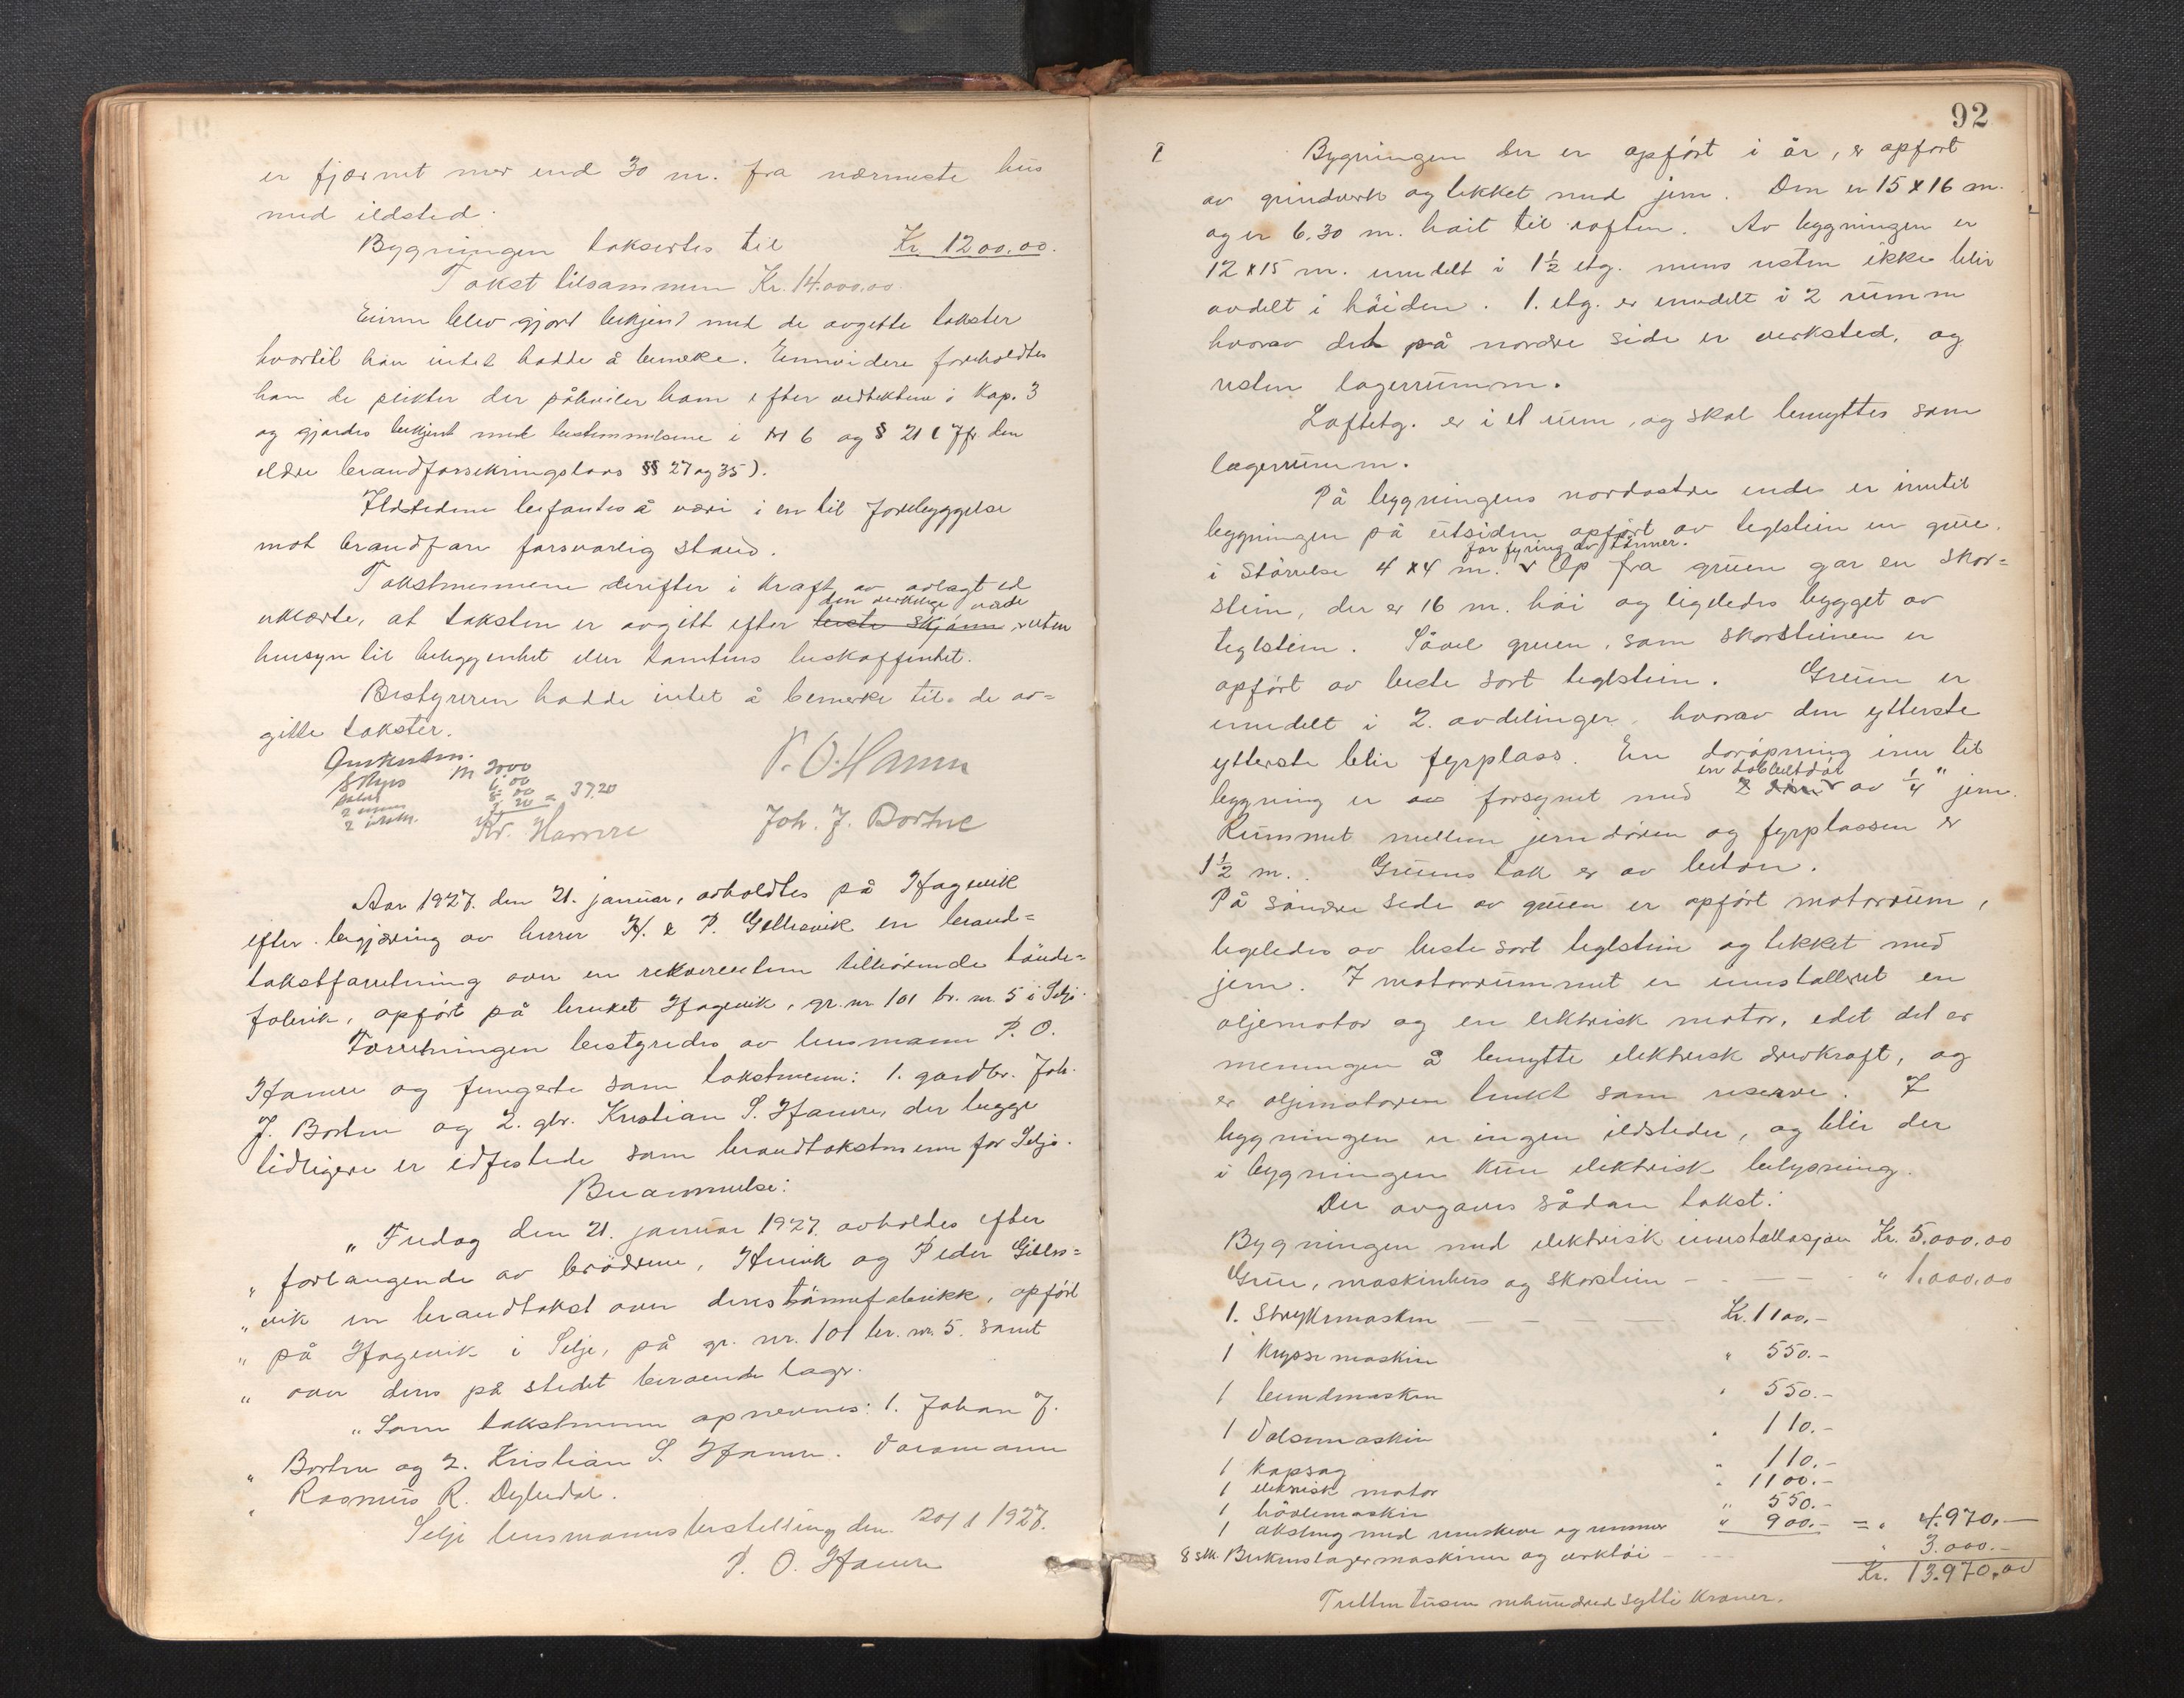 er fjærnet mer end 30 m. fra nærmeste hus
med ildsted.
Bygningen taksertes til Kr. 1200.00.
Takst tilsammen Kr. 14.000.00.
Eieren blev gjort bekjent med de avgitte takster
hvortil han intet hadde å bemerke. Ennvidere foreholdtes
ham de plikter der påhviler ham efter vedtektene i Kap. 3
og gjordes bekjent med bestemmelsene i § 6 og § 21 (Jfr den
eldre brandforsikringslovs §§ 27 og 35).
Ildstedene befantes å være i en til forebyggelse
mot brandfare forsvarlig stand.
Takstmennene derefter i kraft av avlagt ed
den virkelige værdi
erklærte, at taksten er avgitt efter beste skjønn, uten
hensyn til beliggenhet eller tomtens beskaffenhet.
Bestyreren hadde intet å bemerke til de av=
gitte takster.
P. O. Hamre
Skyss
= 37.20
Kr. Hamre Joh. J. Bortne
Aar 1927. den 21. januar, avholdtes på Hagevik
efter begjæring av herrer H. & P. Gillesvik en brand=
takstforretning over en rekvirentene tilhørende tønde=
fabrik, opført på bruket Hagevik, gr. nr 101 br. nr. 5 i Selje.
Forretningen bestyredes av lensmann P. O.
Hamre og fungerte som takstmenn: 1. gardbr. Joh.
J. Bortne og 2. gbr. Kristian S. Hamre, der begge
tidligere er edfestede som brandtakstmenn for Selje.
Berammelse:
" Fredag den 21. januar 1927. avholdes efter
" forlangende av brødrene, Henrik og Peder Gilles=
" vik en brandtakst over deres tønnefabrikk, opført
" på Hagevik i Selje, på gr. nr. 101 br. nr. 5. samt
" over dens på stedet beroende lager.
" Som takstmenn opnevnes: 1. Johan J.
" Bortne og 2. Kristian S. Hamre. Varamann
" Rasmus R. Dybedal.
Selje lensmannsbestilling den 20/1 1927.
P. O. Hamre
92
Bygningen der er opført i år, er opført
av grindverk og tekket med jern. Den er 15 x 16 m.
og er 6.30 m. høit til raften. Av bygningen er
12 x 15 m. inndelt i 1½ etg. mens resten ikke blir
avdelt i høiden. 1. etg. er inndelt i 2 rumm
hvorav det på nordre side er verksted, og
resten lagerrumm.
Loftetg. er i et rum, og skal benyttes som
lagerrumm.
På bygningens nordøstre ende er inntil
bygningen på utsiden opført av teglstein en grue
for fyring av tønner.
i størrelse 4 x 4 m. Op fra gruen går en skor=
stein, der er 16 m. høi og ligeledes bygget av
teglstein. Såvel gruen, som skorsteinen er
opført av beste sort teglstein. Gruen er
inndelt i 2. avdelinger, hvorav den ytterste
ytterste blir fyrplass. En døråpning inn til
en dobbeltdør
bygning er forsynet med 2 dører av ¼" jern.
Rummet mellem jerndøren og fyrplassen er
1½ m. Gruens tak er av betong.
På søndre side av gruen er opført motorrum,
ligeledes av beste sort teglstein og tekket med
jern. I motorrummet er innstalleret en
oljemotor og en elektrisk motor, idet det er
meningen å benytte elektrisk drivkraft, og
er oljemotoren tenkt som reserve. I
bygningen er ingen ildsteder, og blir der
i bygningen kun elektrisk belysning.
Der avgaves sådan takst:
Bygningen med elektrisk innstallasjon Kr. 5.000.00
Grue, maskinhus og skorstein " 1.000.00
1. Strykemaskin Kr. 1100.-
1 Krysemaskin " 550.-
1 bundmaskin " 550.-
1 Valsemaskin " 110.-
1 Kapsag " 110.-
1 elektrisk motor " 1100.-
1 høvlemaskin " 550.-
1 aksling med remskiver og remmer " 900.- = " 4.970.-
8 stk. Bukenslagermaskiner og verktøi " 3.000.-
Kr. 13.970.00
Tretten tusen nihundred sytti kroner.